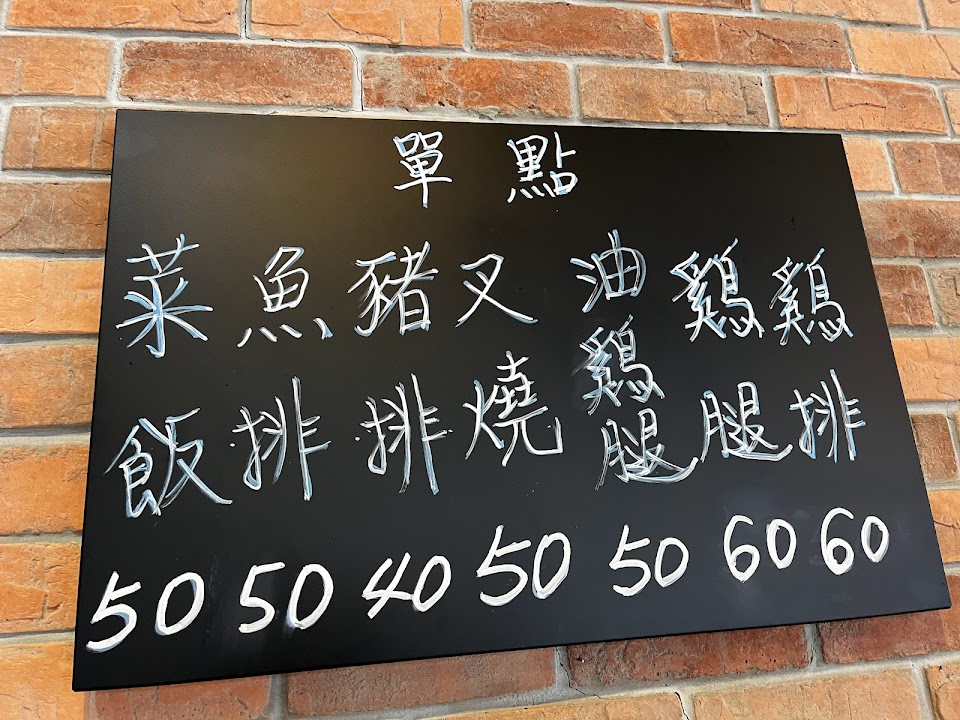 單點
雞排 60
雞腿 60
油雞腿 50
叉燒 50
豬排 40
魚排 50
菜飯 50